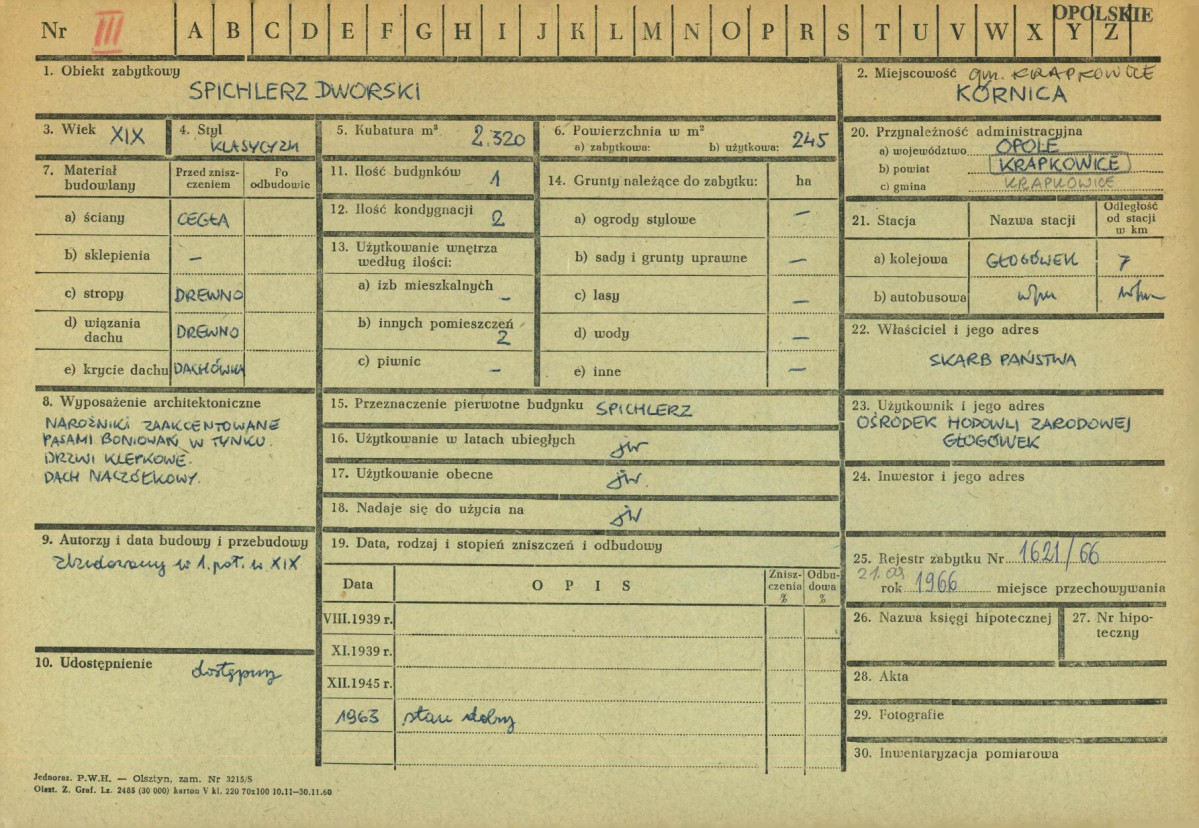 OPOLSKIE
Nr III A B C D E F G H I J K L M N O P R S T U V W X Y Z
1. Obiekt zabytkowy
SPICHLERZ DWORSKI
2. Miejscowość gm. KRAPKOWICE
KÓRNICA
3. Wiek XIX
4. Styl
KLASYCYZM
5. Kubatura m³ 2.320
6. Powierzchnia w m²
a) zabytkowa: b) użytkowa: 245
7. Materiał budowlany
Przed zniszczeniem
Po odbudowie
a) ściany CEGŁA
b) sklepienia –
c) stropy DREWNO
d) wiązania dachu DREWNO
e) krycie dachu DACHÓWKA
8. Wyposażenie architektoniczne
NAROŻNIKI ZAAKCENTOWANE
PASAMI BONIOWAŃ W TYNKU.
DRZWI KLEPKOWE.
DACH NACZÓŁKOWY.
9. Autorzy i data budowy i przebudowy
Zbudowany w 1. poł. w XIX
10. Udostępnienie dostępny
11. Ilość budynków 1
12. Ilość kondygnacji 2
13. Użytkowanie wnętrza
według ilości:
a) izb mieszkalnych –
b) innych pomieszczeń 2
c) piwnic –
14. Grunty należące do zabytku: ha
a) ogrody stylowe –
b) sady i grunty uprawne –
c) lasy –
d) wody –
e) inne –
15. Przeznaczenie pierwotne budynku SPICHLERZ
16. Użytkowanie w latach ubiegłych jw
17. Użytkowanie obecne jw.
18. Nadaje się do użycia na jw
19. Data, rodzaj i stopień zniszczeń i odbudowy
Data OPIS Zniszczenia % Odbudowa %
VIII.1939 r.
XI.1939 r.
XII.1945 r.
1963 stan dobry
20. Przynależność administracyjna
a) województwo OPOLE
b) powiat KRAPKOWICE
c) gmina KRAPKOWICE
21. Stacja Nazwa stacji Odległość od stacji w km
a) kolejowa GŁOGÓWEK 7
b) autobusowa
22. Właściciel i jego adres
SKARB PAŃSTWA
23. Użytkownik i jego adres
OŚRODEK HODOWLI ZARODOWEJ
GŁOGÓWEK
24. Inwestor i jego adres
25. Rejestr zabytku Nr 1621/66
21.09
rok 1966 miejsce przechowywania
26. Nazwa księgi hipotecznej
27. Nr hipoteczny
28. Akta
29. Fotografie
30. Inwentaryzacja pomiarowa
Jednoraz. P.W.H. — Olsztyn, zam. Nr 3215/S
Olszt. Z. Graf. Lz. 2485 (30 000) karton V kl. 220 70x100 10.11—30.11.60